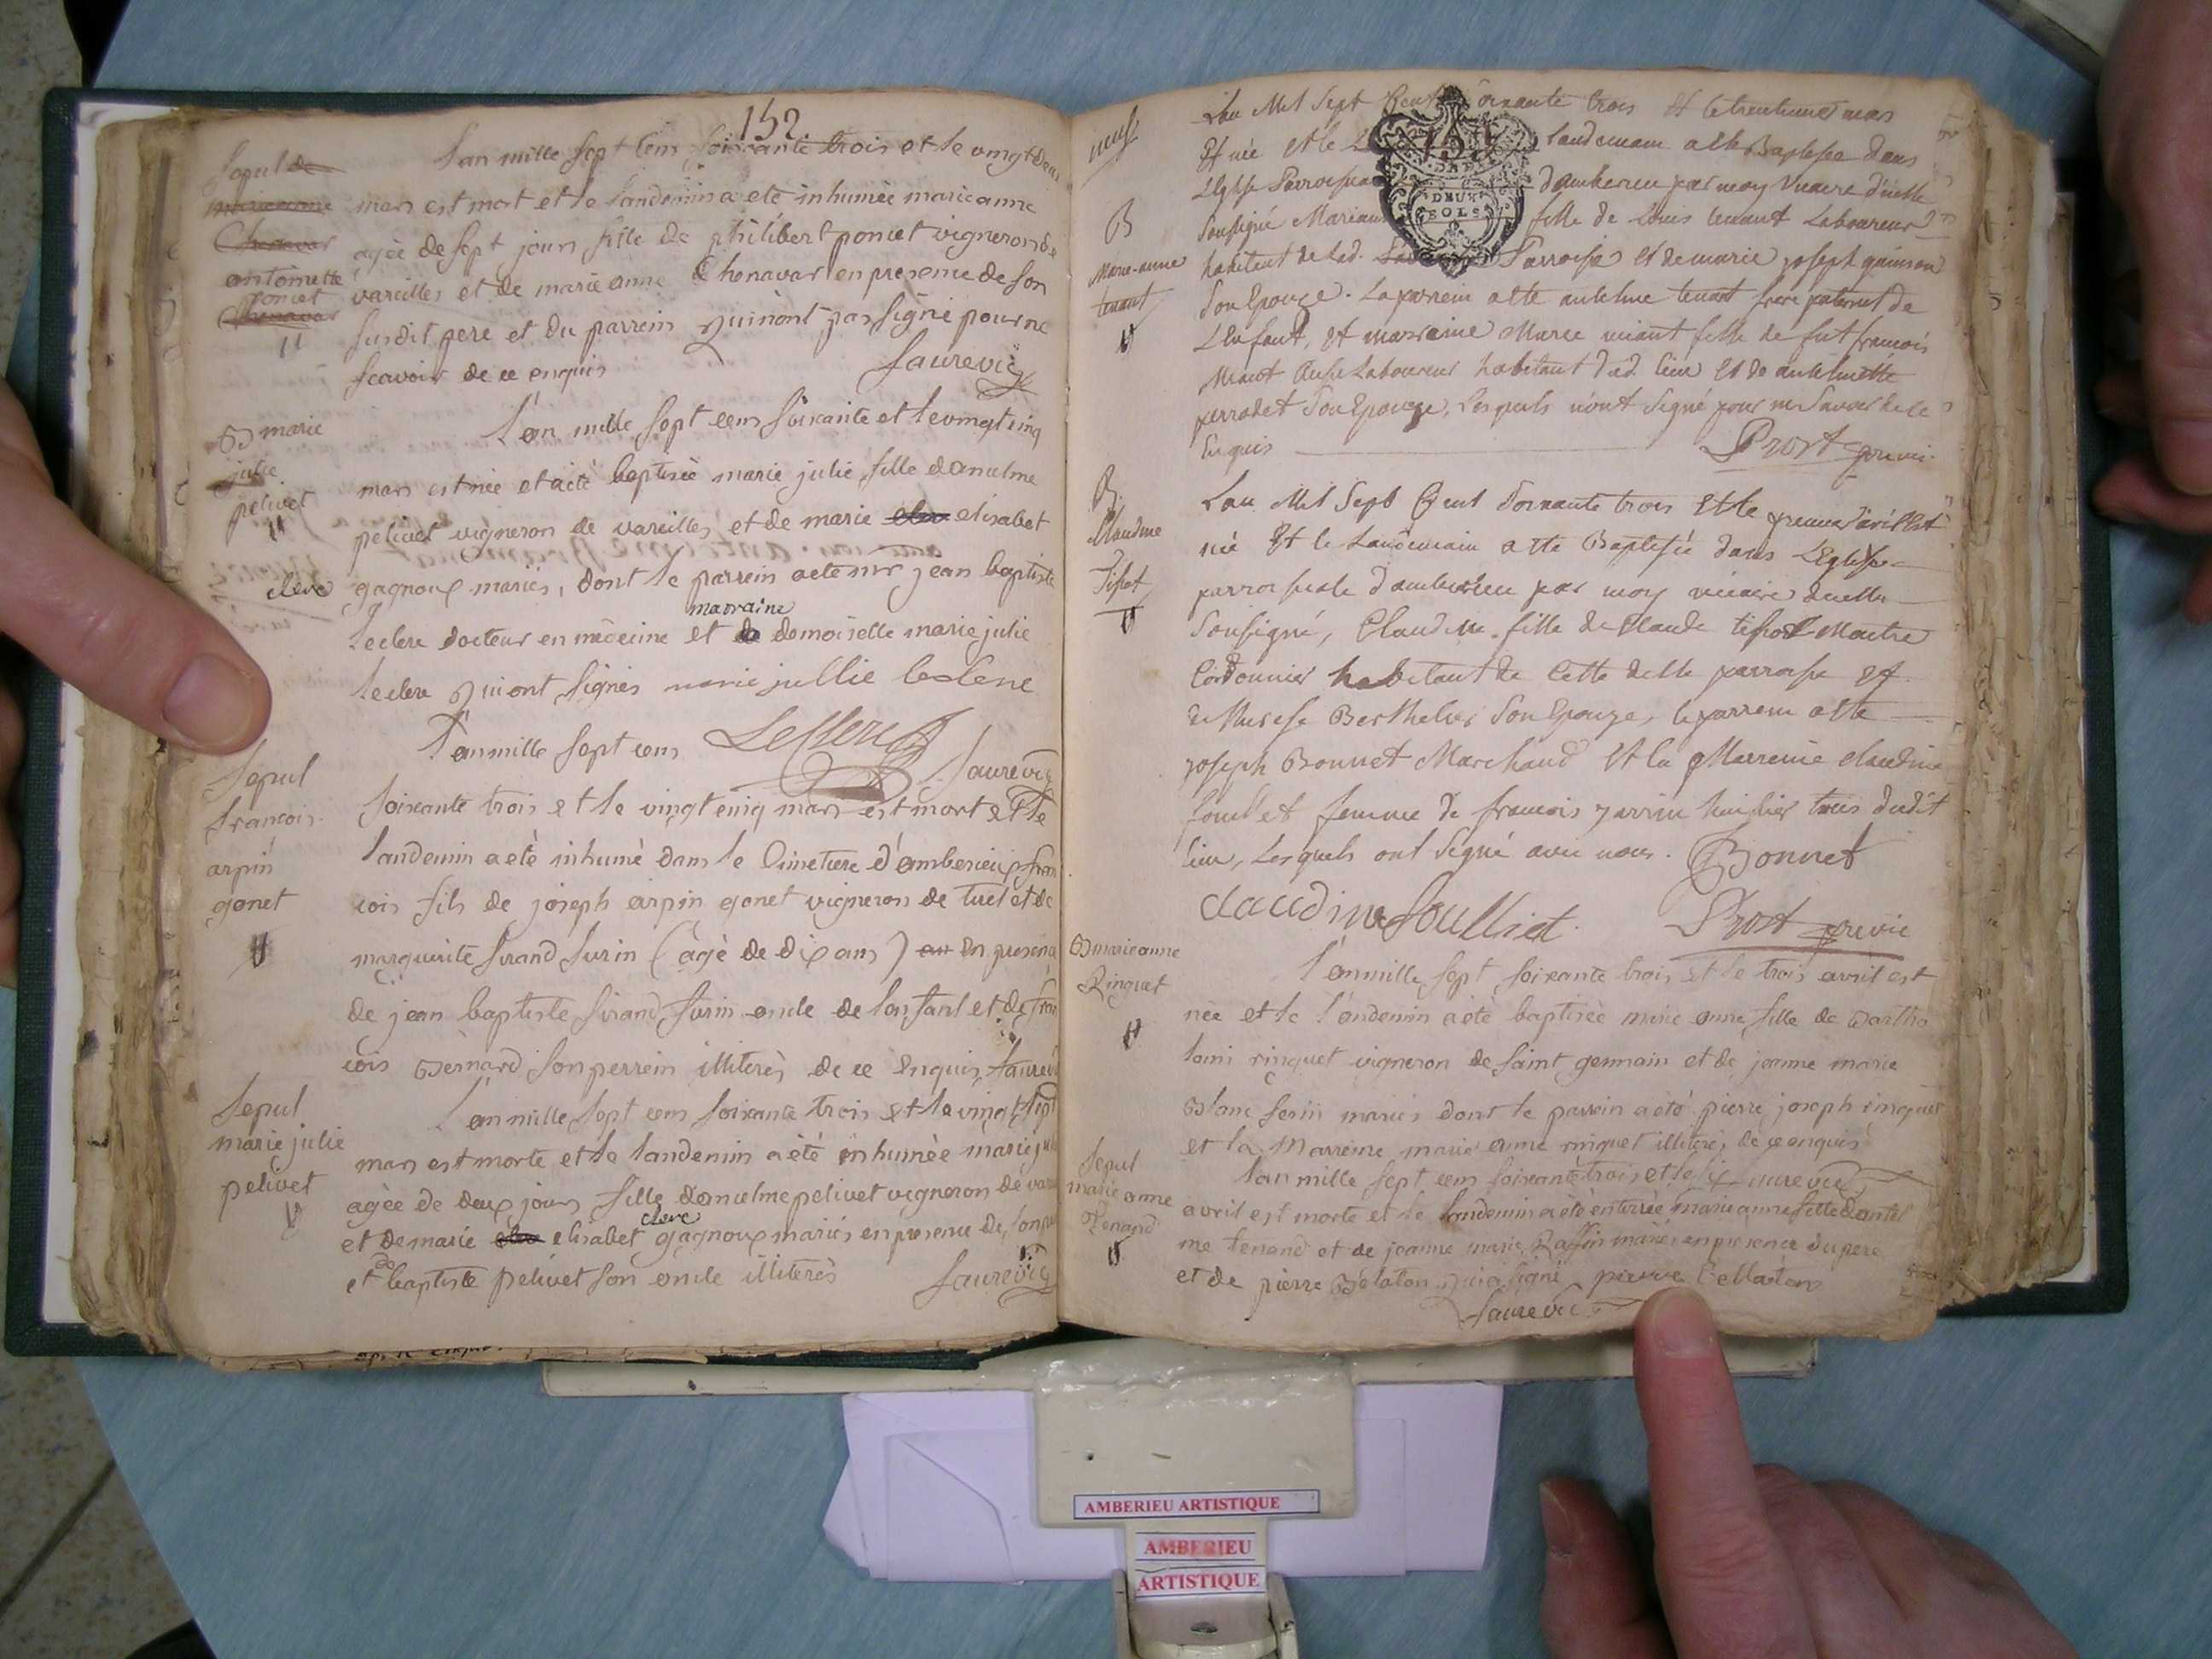 152
Sepul de
marieanne
Chenavar
antoinette
poncet
Chenavar
L'an mille sept cens soixante trois et le vingt deux
mars est mort et le landemin a eté inhumée marieanne
agée de sept jours fille de philibert poncet vigneron de
vareilles et de marieanne Chenavar en presence de son
susdit pere et du parrein qui n'ont pas signé pour ne
scavoir de ce enquis
Laurevic
B marie
julie
pelivet
L'an mille sept cens soixante et le vingt cinq
mars est née et a eté baptisée marie julie fille danselme
pelivet vigneron de vareilles et de marie elisabet
cleve gagnoux mariés, dont le parrein a ete mr jean baptiste
marraine
leclerc docteur en médecine et demoiselle marie julie
leclerc qui ont signés marie jullie leclerc
LeClerc
Laurevic
Sepul
francois
arpin
gonet
L'an mille sept cens
soixante trois et le vingt cinq mars est mort et le
landemin a eté inhumé dans le Cimetiere d'amberieux fran
cois fils de joseph arpin gonet vigneron de tiret et de
marguerite sirand surin (agé de dix ans) en presence
de jean baptiste sirand surin oncle de lanfant et de fran
cois Bernard son perrein illiterés de ce enquis Laurevic
Sepul
marie julie
pelivet
L'an mille sept cens soixante trois et le vingt sept
mars est morte et le landemin a été inhumée marie julie
agée de deux jours fille danselme pelivet vigneron de
cleve
et de marie elisabet gagnoux mariés en presence de son
et de baptiste pelivet son oncle illiterés
Laurevic
neuf
B
Marie-anne
tenant
L'an Mil Sept Cent Soixante trois Et le trentunie mars
Et née et le landemain a etté Baptisée dans
L'Eglise Parroissiale d'amberieu par moy Vicaire d'icelle
DEUX
SOLS
Soussigné Marianne fille de Louis tenant Laboureur
habitant de lad. Parroisse Et de marie joseph guinson
Son Epouze. Le parrein a etté anthelme tenant frere paternel de
L'Enfant, Et marraine Marie miant fille de fut francois
Miant Aussi Laboureur habitant dud. lieu Et de anthelmette
perrodet Son Epouze, Lesquels n'ont Signé pour ne Savoir de ce
Enquis
Prost
B.
Claudine
Tissot
L'an Mil Sept Cent Soixante trois Et le premier avril Est
née Et le Landemain a etté Baptisée dans L'Eglise
parroissiale d'amberieu par moy vicaire d'icelle
Soussigné, Claudine fille de Claude tissot Maitre
Cordonnier habitant de Cette ditte parroisse et
de Berthelier Son Epouze, le parrein a etté
joseph Bonnet Marchand Et la Marreine claudine
foulliet femme de francois huissier tous dudit
lieu, Lesquels ont Signé avec nous. Bonnet
claudine foulliet. Prost
B marieanne
Rinquet
L'an mille sept soixante trois et le trois avril est
née et le l'endemin a eté baptisée marie anne fille de Bartho
lomi rinquet vigneron de saint germain et de jeanne marie
Blanc mariés dont le parrein a eté pierre joseph rinquet
et la Marreine marie anne rinquet illiterés de ce enquis
Laurevic
Sepul
marie anne
Tenand
L'an mille sept cens soixante trois et le six
avril est morte et le landemin a eté enterrée marie anne fille dantel
me tenand et de jeanne marie Raffin mariés en presence du pere
et de pierre Bélaton qui a signé pierre bellaton
Laurevic
AMBERIEU ARTISTIQUE
AMBERIEU
ARTISTIQUE